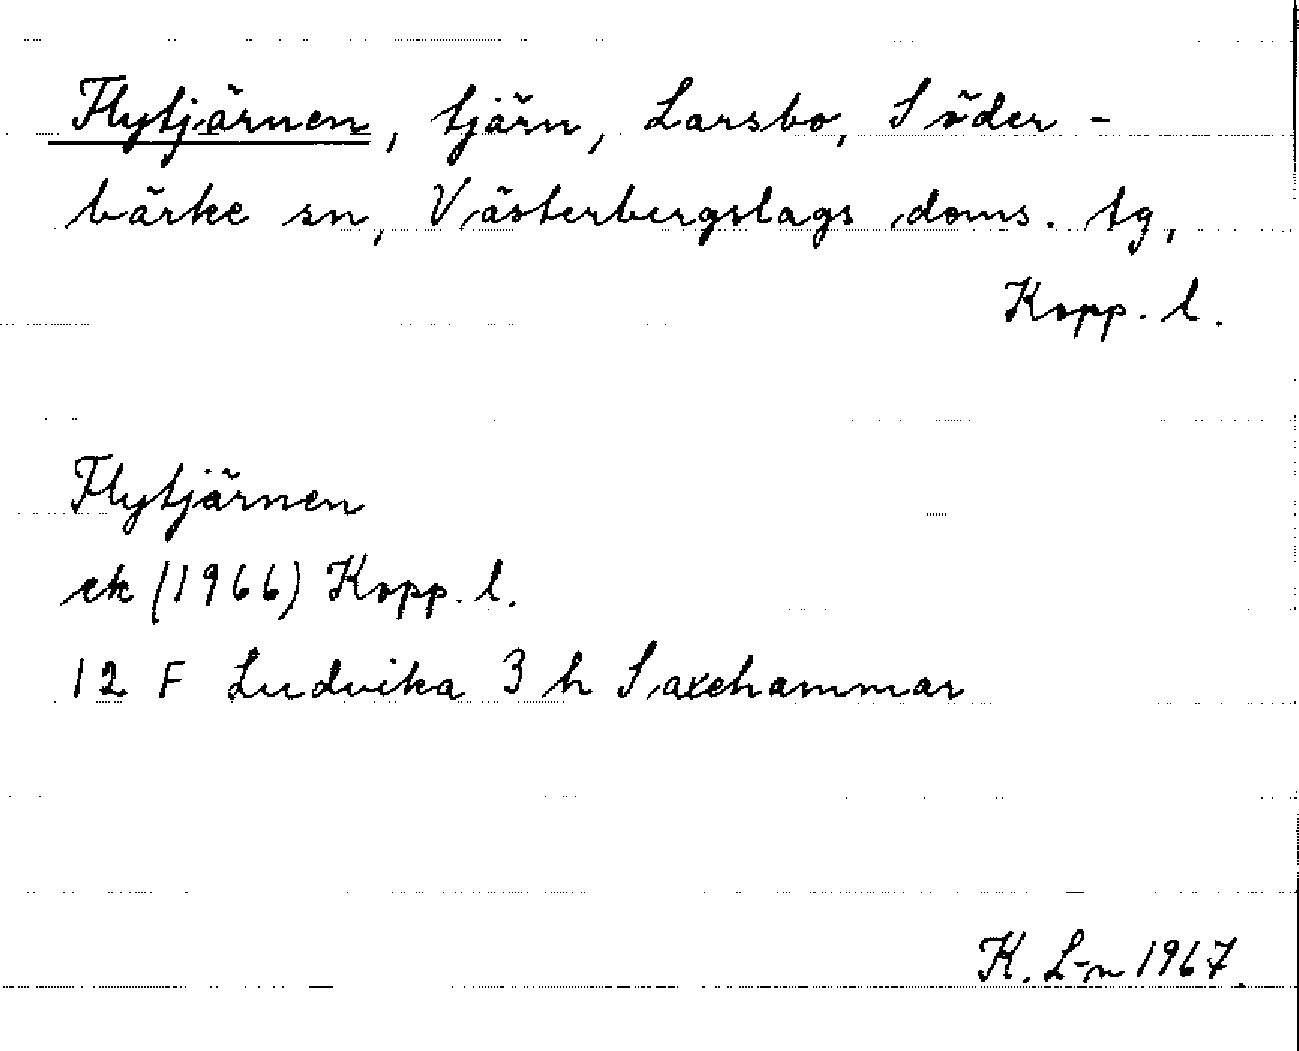 Flytjärnen, tjärn, Larsbo, Söder-
bärke sn, Västerbergslags doms. tg,
Kopp. l.
Flytjärnen
ek (1966) Kopp. l.
12 F Ludvika 3 h Saxehammar
K. L-n 1967.